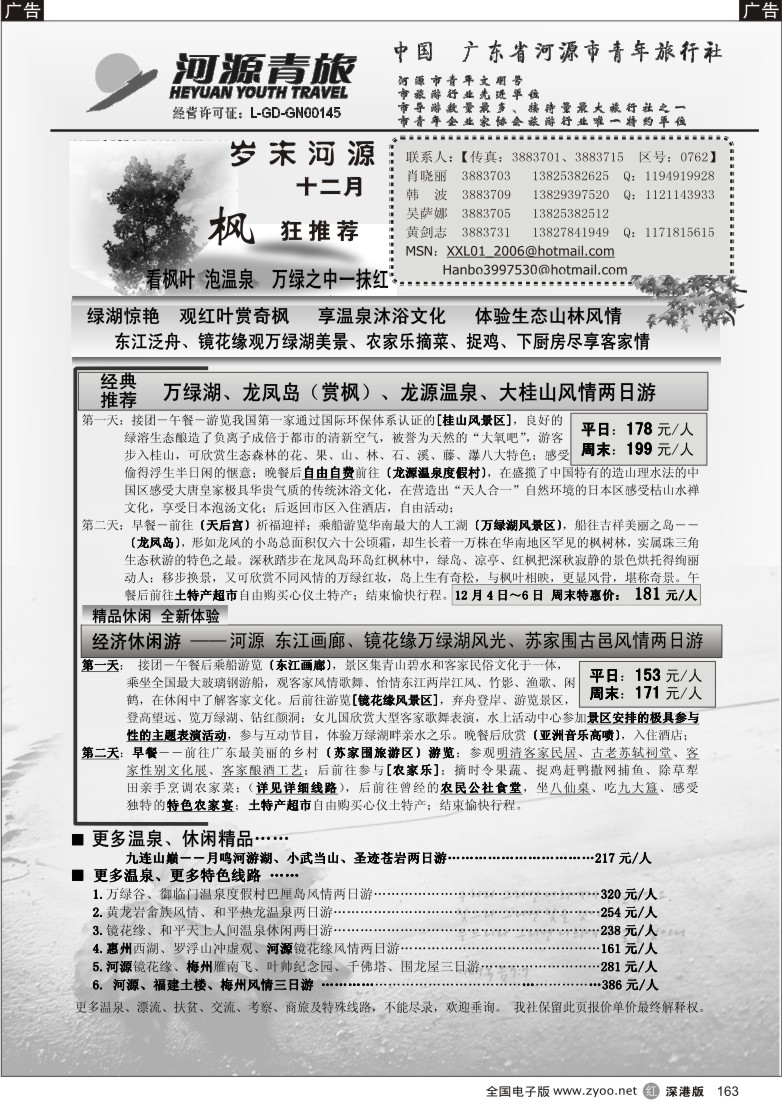 广告
广告
河源青旅
HEYUAN YOUTH TRAVEL
经营许可证：L-GD-GN00145
中国　广东省河源市青年旅行社
河源市青年文明号
市旅游行业先进单位
市导游数量最多、接待量最大旅行社之一
市青年企业家协会旅游行业唯一特约单位
岁末河源
十二月
枫 狂推荐
看枫叶 泡温泉　万绿之中一抹红
联系人：【传真：3883701、3883715　区号：0762】
肖晓丽　3883703　13825382625　Q：1194919928
韩　波　3883709　13829397520　Q：1121143933
吴萨娜　3883705　13825382512
黄剑志　3883731　13827841949　Q：1171815615
MSN：XXL01_2006@hotmail.com
Hanbo3997530@hotmail.com
绿湖惊艳　观红叶赏奇枫　　享温泉沐浴文化　　体验生态山林风情
东江泛舟、镜花缘观万绿湖美景、农家乐摘菜、捉鸡、下厨房尽享客家情
经典推荐　万绿湖、龙凤岛（赏枫）、龙源温泉、大桂山风情两日游
平日：178 元/人
周末：199 元/人
第一天：接团－午餐－游览我国第一家通过国际环保体系认证的[桂山风景区]，良好的
绿溶生态酿造了负离子成倍于都市的清新空气，被誉为天然的“大氧吧”，游客
步入桂山，可欣赏生态森林的花、果、山、林、石、溪、藤、瀑八大特色；感受
偷得浮生半日闲的惬意；晚餐后自由自费前往（龙源温泉度假村），在盛揽了中国特有的造山理水法的中
国区感受大唐皇家极具华贵气质的传统沐浴文化，在营造出“天人合一”自然环境的日本区感受枯山水禅
文化，享受日本泡汤文化；后返回市区入住酒店，自由活动；
第二天：早餐－前往（天后宫）祈福迎祥；乘船游览华南最大的人工湖（万绿湖风景区），船往吉祥美丽之岛－－
（龙凤岛），形如龙凤的小岛总面积仅六十公顷霜，却生长着一万株在华南地区罕见的枫树林，实属珠三角
生态秋游的特色之最。深秋踏步在龙凤岛环岛红枫林中，绿岛、凉亭、红枫把深秋寂静的景色烘托得绚丽
动人；移步换景，又可欣赏不同风情的万绿红妆，岛上生有奇松，与枫叶相映，更显风骨，堪称奇景。午
餐后前往土特产超市自由购买心仪土特产；结束愉快行程。12 月 4 日～6 日 周末特惠价： 181 元/人
精品休闲 全新体验
经济休闲游 ——河源 东江画廊、镜花缘万绿湖风光、苏家围古邑风情两日游
平日：153 元/人
周末：171 元/人
第一天： 接团－午餐后乘船游览（东江画廊），景区集青山碧水和客家民俗文化于一体，
乘坐全国最大玻璃钢游船，观客家风情歌舞、怡情东江两岸江风、竹影、渔歌、闲
鹤，在休闲中了解客家文化。后前往游览[镜花缘风景区]，弃舟登岸、游览景区，
登高望远、览万绿湖、钻红颜洞；女儿国欣赏大型客家歌舞表演，水上活动中心参加景区安排的极具参与
性的主题表演活动，参与互动节目，体验万绿湖畔亲水之乐。晚餐后欣赏（亚洲音乐高喷），入住酒店；
第二天：早餐－－前往广东最美丽的乡村（苏家围旅游区）游览；参观明清客家民居、古老苏轼祠堂、客
家性别文化展、客家酿酒工艺；后前往参与[农家乐]；摘时令果蔬、捉鸡赶鸭撒网捕鱼、除草犁
田亲手烹调农家菜；（详见详细线路），后前往曾经的农民公社食堂，坐八仙桌、吃九大簋、感受
独特的特色农家宴；土特产超市自由购买心仪土特产；结束愉快行程。
■ 更多温泉、休闲精品……
九连山巅－－月鸣河游湖、小武当山、圣迹苍岩两日游……………………………217 元/人
■ 更多温泉、更多特色线路 ……
1. 万绿谷、御临门温泉度假村巴厘岛风情两日游……………………………………320 元/人
2. 黄龙岩畲族风情、和平热龙温泉两日游……………………………………………254 元/人
3. 镜花缘、和平天上人间温泉休闲两日游……………………………………………238 元/人
4. 惠州西湖、罗浮山冲虚观、河源镜花缘风情两日游………………………………161 元/人
5. 河源镜花缘、梅州雁南飞、叶帅纪念园、千佛塔、围龙屋三日游………………281 元/人
6. 河源、福建土楼、梅州风情三日游 ………………………………………………386 元/人
更多温泉、漂流、扶贫、交流、考察、商旅及特殊线路，不能尽录，欢迎垂询。 我社保留此页报价单价最终解释权。
全国电子版 www.zyoo.net 红 深港版 163